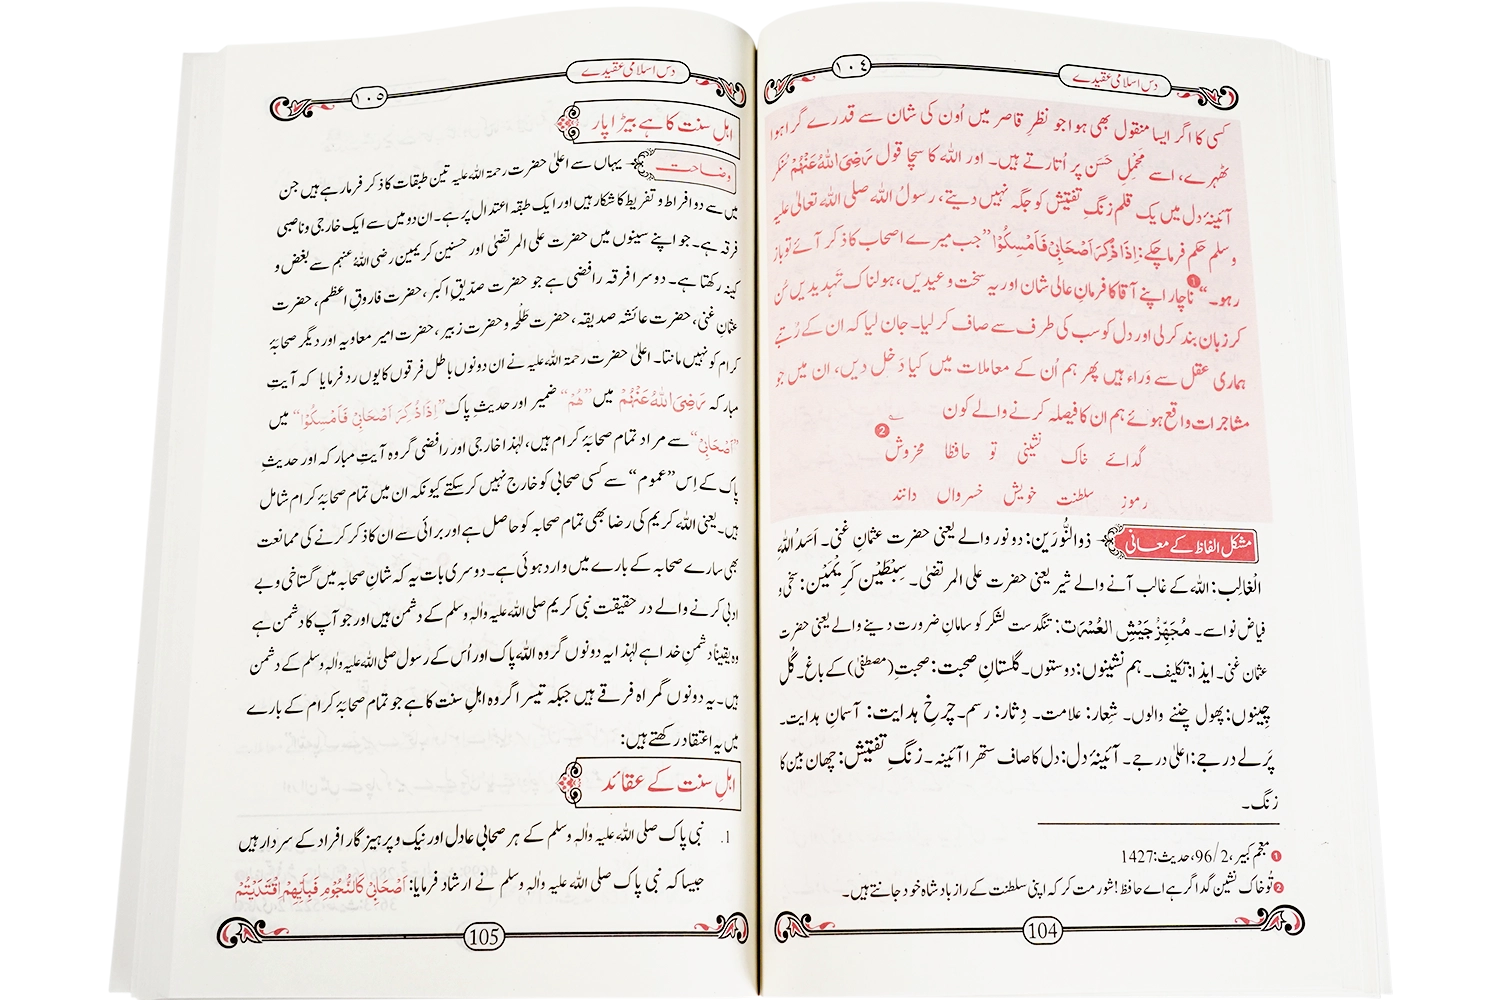 ١٠٤
دس اسلامی عقیدے
کسی کا اگر ایسا منقول بھی ہوا جو نظرِ قاصر میں اُون کی شان سے قدرے گرا ہوا
ٹھہرے، اسے محملِ حَسَن پر اُتارتے ہیں۔ اور اللہ کا سچا قول رَضِیَ اللهُ عَنْهُمْ سُن کر
آئینۂ دل میں یک قلم زنگِ تفتیش کو جگہ نہیں دیتے، رسولُ اللہ صلی اللہ تعالیٰ علیہ
وسلم حکم فرما چکے: اِذَا ذُکِرَ اَصْحَابِیْ فَاَمْسِکُوْا ”جب میرے اصحاب کا ذکر آئے تو باز
رہو۔“ ❶ ناچار اپنے آقا کا فرمانِ عالی شان اور یہ سخت وعیدیں، ہولناک تَہدیدیں سُن
کر زبان بند کرلی اور دل کو سب کی طرف سے صاف کر لیا۔ جان لیا کہ ان کے رُتبے
ہماری عقل سے وَراء ہیں پھر ہم اُن کے معاملات میں کیا دَخل دیں، ان میں جو
مشاجرات واقع ہوئے ہم ان کا فیصلہ کرنے والے کون
گدائے خاک نشینی تو حافظا مخروش ❷
رموزِ سلطنت خویش خسرواں دانند
مشکل الفاظ کے معانی ذوالنُّورَین: دو نور والے یعنی حضرت عثمانِ غنی۔ اَسَدُ اللہِ
الْغالِب: اللہ کے غالب آنے والے شیر یعنی حضرت علی المرتضیٰ۔ سِبْطَیْن کَرِیْمَیْن: سخی و
فیاض نواسے۔ مُجَهِّزُ جَیْشِ العُسْرَت: تنگدست لشکر کو سامانِ ضرورت دینے والے یعنی حضرت
عثمان غنی۔ ایذا: تکلیف۔ ہم نشینوں: دوستوں۔ گلستانِ صحبت: صحبتِ (مصطفیٰ) کے باغ۔ گُل
چینوں: پھول چننے والوں۔ شِعار: علامت۔ دِثار: رسم۔ چرخِ ہدایت: آسمانِ ہدایت۔
پَرلے درجے: اعلیٰ درجے۔ آئینۂ دل: دل کا صاف ستھرا آئینہ۔ زنگِ تفتیش: چھان بین کا
زنگ۔
❶ معجم کبیر، 96/2، حدیث: 1427
❷ تُو خاک نشین گداگر ہے اے حافظ! شور مت کر کہ اپنی سلطنت کے راز بادشاہ خود جانتے ہیں۔
104
دس اسلامی عقیدے
١٠٥
اہلِ سنت کا ہے بیڑا پار
وضاحت یہاں سے اعلیٰ حضرت رحمۃ اللہ علیہ تین طبقات کا ذکر فرما رہے ہیں جن
میں سے دو افراط و تفریط کا شکار ہیں اور ایک طبقہ اعتدال پر ہے۔ ان دو میں سے ایک خارجی وناصبی
فرقہ ہے۔ جو اپنے سینوں میں حضرت علی المرتضیٰ اور حسنین کریمین رضی اللہُ عنہم سے بغض و
کینہ رکھتا ہے۔ دوسرا فرقہ رافضی ہے جو حضرت صدّیقِ اکبر، حضرت فاروقِ اعظم، حضرت
عثمانِ غنی، حضرت عائشہ صدیقہ، حضرت طَلْحہ و حضرت زبیر، حضرت امیر معاویہ اور دیگر صحابۂ
کرام کو نہیں مانتا۔ اعلیٰ حضرت رحمۃ اللہ علیہ نے ان دونوں باطل فرقوں کا یوں رد فرمایا کہ آیتِ
مبارکہ رَضِیَ اللهُ عَنْهُمْ میں ”هُمْ“ ضمیر اور حدیثِ پاک ”اِذَا ذُکِرَ اَصْحَابِیْ فَاَمْسِکُوْا“ میں
”اَصْحَابِیْ“ سے مراد تمام صحابۂ کرام ہیں، لہٰذا خارجی اور رافضی گروہ آیتِ مبارکہ اور حدیثِ
پاک کے اِس ”عموم“ سے کسی صحابی کو خارج نہیں کر سکتے کیونکہ ان میں تمام صحابۂ کرام شامل
ہیں۔ یعنی اللہ کریم کی رضا بھی تمام صحابہ کو حاصل ہے اور برائی سے ان کا ذکر کرنے کی ممانعت
بھی سارے صحابہ کے بارے میں وارد ہوئی ہے۔ دوسری بات یہ کہ شانِ صحابہ میں گستاخی و بے
ادبی کرنے والے در حقیقت نبی کریم صلی اللہ علیہ واٰلہٖ وسلم کے دشمن ہیں اور جو آپ کا دشمن ہے
وہ یقیناً دشمنِ خدا ہے لہٰذا یہ دونوں گروہ اللہ پاک اور اُس کے رسول صلی اللہ علیہ واٰلہٖ وسلم کے دشمن
ہیں۔ یہ دونوں گمراہ فرقے ہیں جبکہ تیسرا گروہ اہلِ سنت کا ہے جو تمام صحابۂ کرام کے بارے
میں یہ اعتقاد رکھتے ہیں:
اہلِ سنت کے عقائد
1. نبی پاک صلی اللہ علیہ واٰلہٖ وسلم کے ہر صحابی عادل اور نیک و پرہیز گار افراد کے سردار ہیں
جیسا کہ نبی پاک صلی اللہ علیہ واٰلہٖ وسلم نے ارشاد فرمایا: اَصْحَابِیْ کَالنُّجُوْمِ فَبِاَیِّهِمْ اقْتَدَیْتُمْ
105